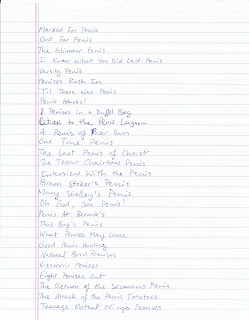 Marked For Penis
Out For Penis
The Glimmer Penis
I Know What You Did Last Penis
Varsity Penis
Penises Rush In
'Til There Was Penis
Penis Attacks!
8 Penises in a Duffel Bag
Return to the Penis Lagoon
A Penis Runs
One True Penis
The Last Penis of Christ
The Texas Chainsaw Penis
Interview With the Penis
Bram Stoker's Penis
Mary Shelley's Penis
Oh God, You Penis!
Penis At Bernie's
This Boy's Penis
What Penises May Come
Good Penis Hunting
Natural Born Penises
Penises
Eight Penises Out
The Return of the Secaucus Penis
The Attack of the Penis Tomatoes
Teenage Mutant Ninja Penises